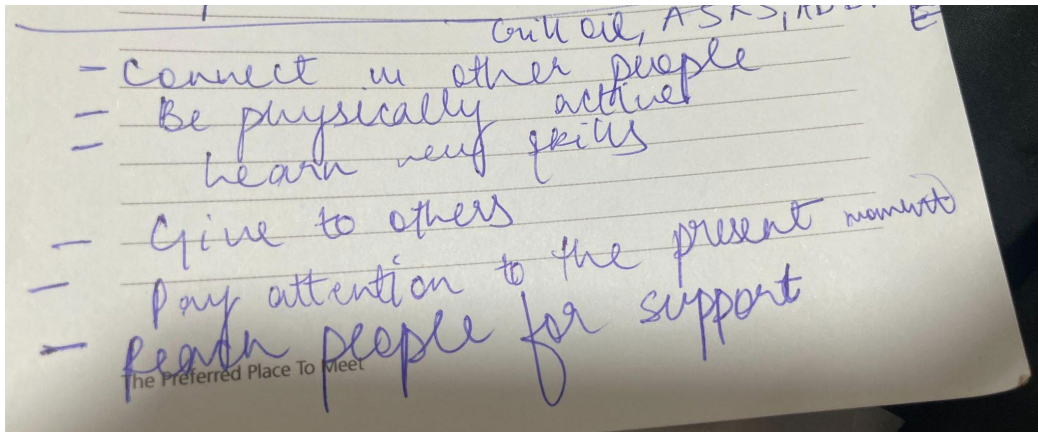 ASRS,
- Connect in other people
- Be physically active
- Learn new skills
- Give to others
- Pay attention to the present moment
- Reach people for support
The Preferred Place To Meet